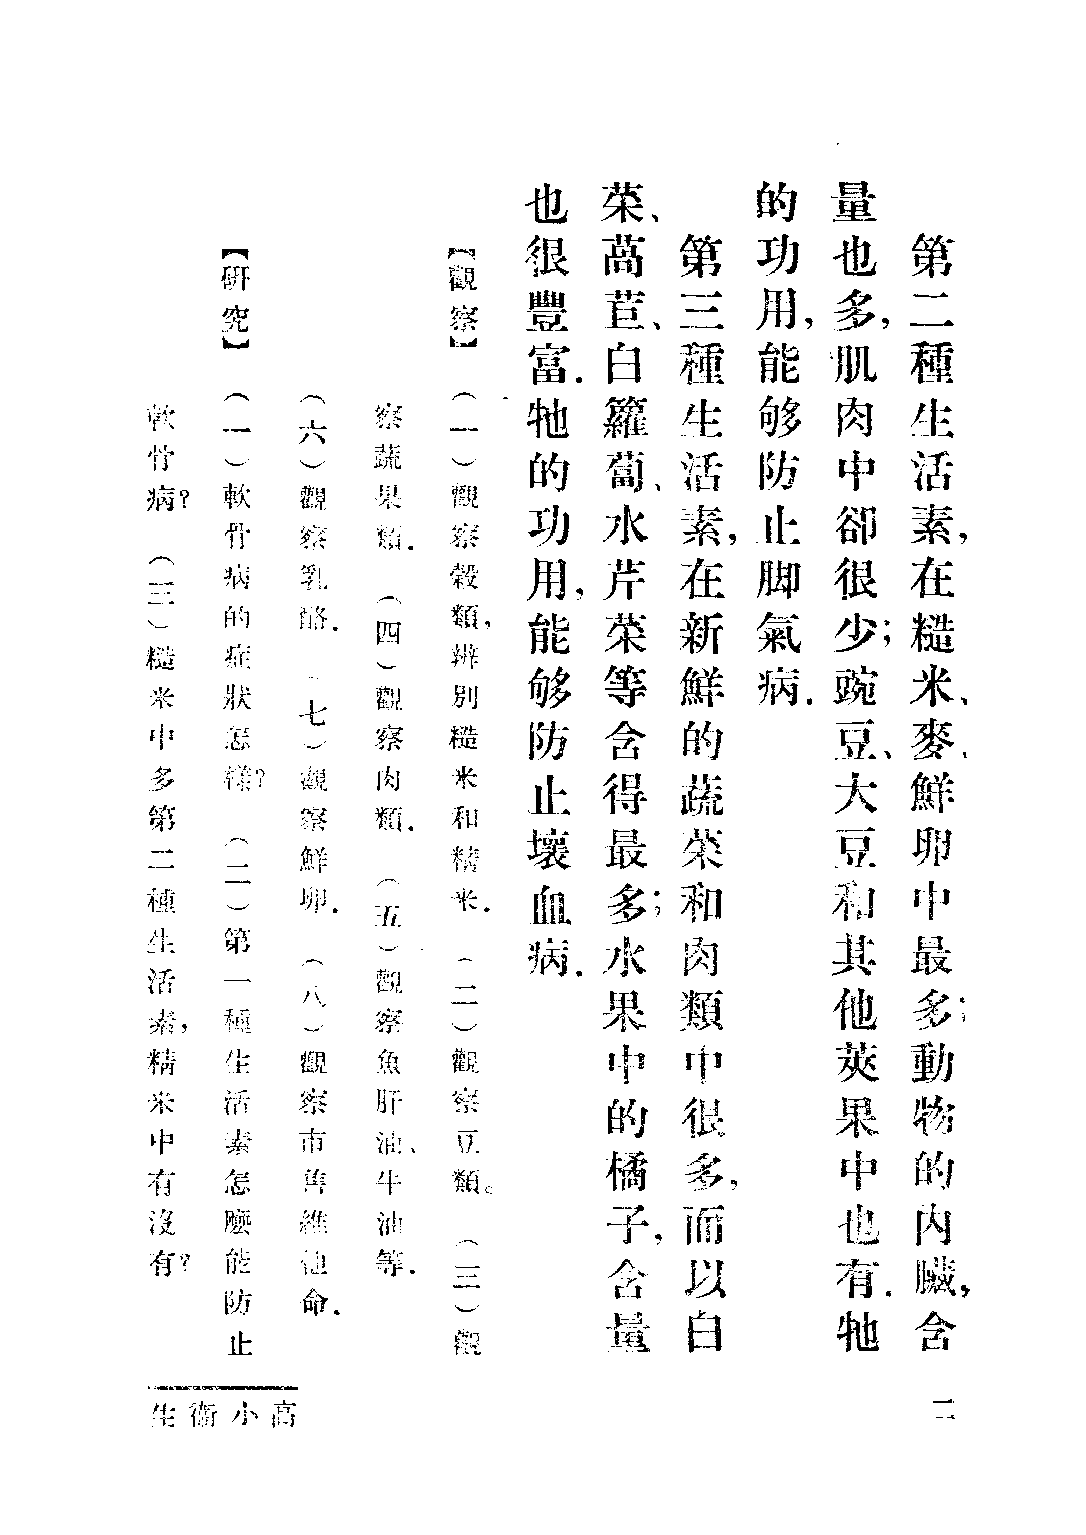 第二種生活素,在糙米、麥、鮮卵中最多;動物的內臟,含
量也多,肌肉中卻很少;豌豆、大豆和其他莢果中也有.牠
的功用,能够防止脚氣病.
第三種生活素,在新鮮的蔬菜和肉類中很多,而以白
菜、萵苣、白蘿蔔、水芹菜等含得最多;水果中的橘子,含量
也很豐富.牠的功用,能够防止壞血病.
【觀察】 (一)觀察穀類,辨別糙米和精米. (二)觀察豆類。 (三)觀
察蔬果類. (四)觀察肉類. (五)觀察魚肝油、牛油等.
(六)觀察乳酪. (七)觀察鮮卵. (八)觀察市售維他命.
【研究】 (一)軟骨病的症狀怎樣? (二)第一種生活素怎麼能防止
軟骨病? (三)糙米中多第二種生活素,精米中有沒有?
高小衞生
二